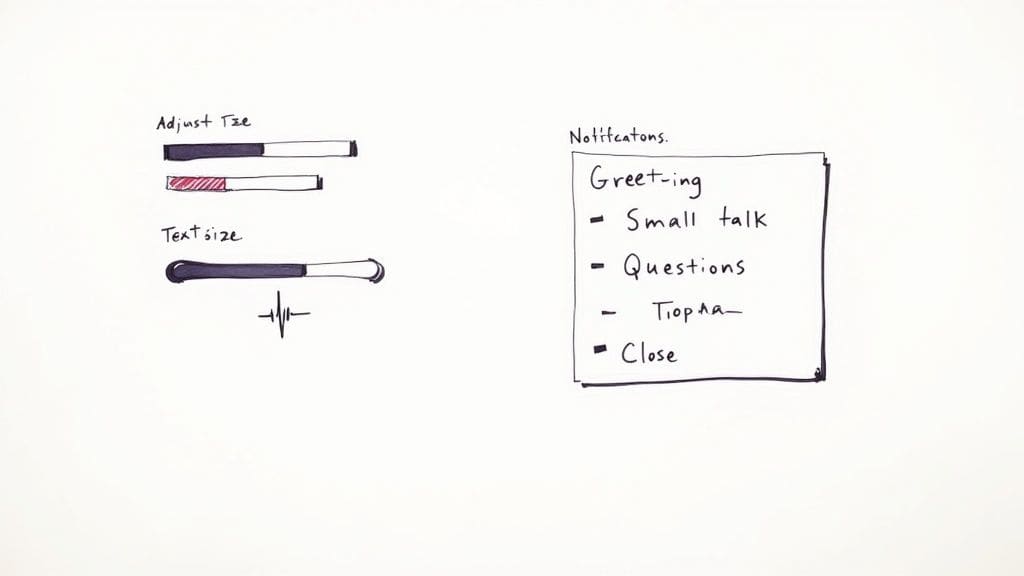 Adjust Tze
Text size
Notifcatons.
Greet-ing
- Small talk
- Questions
-
- Close